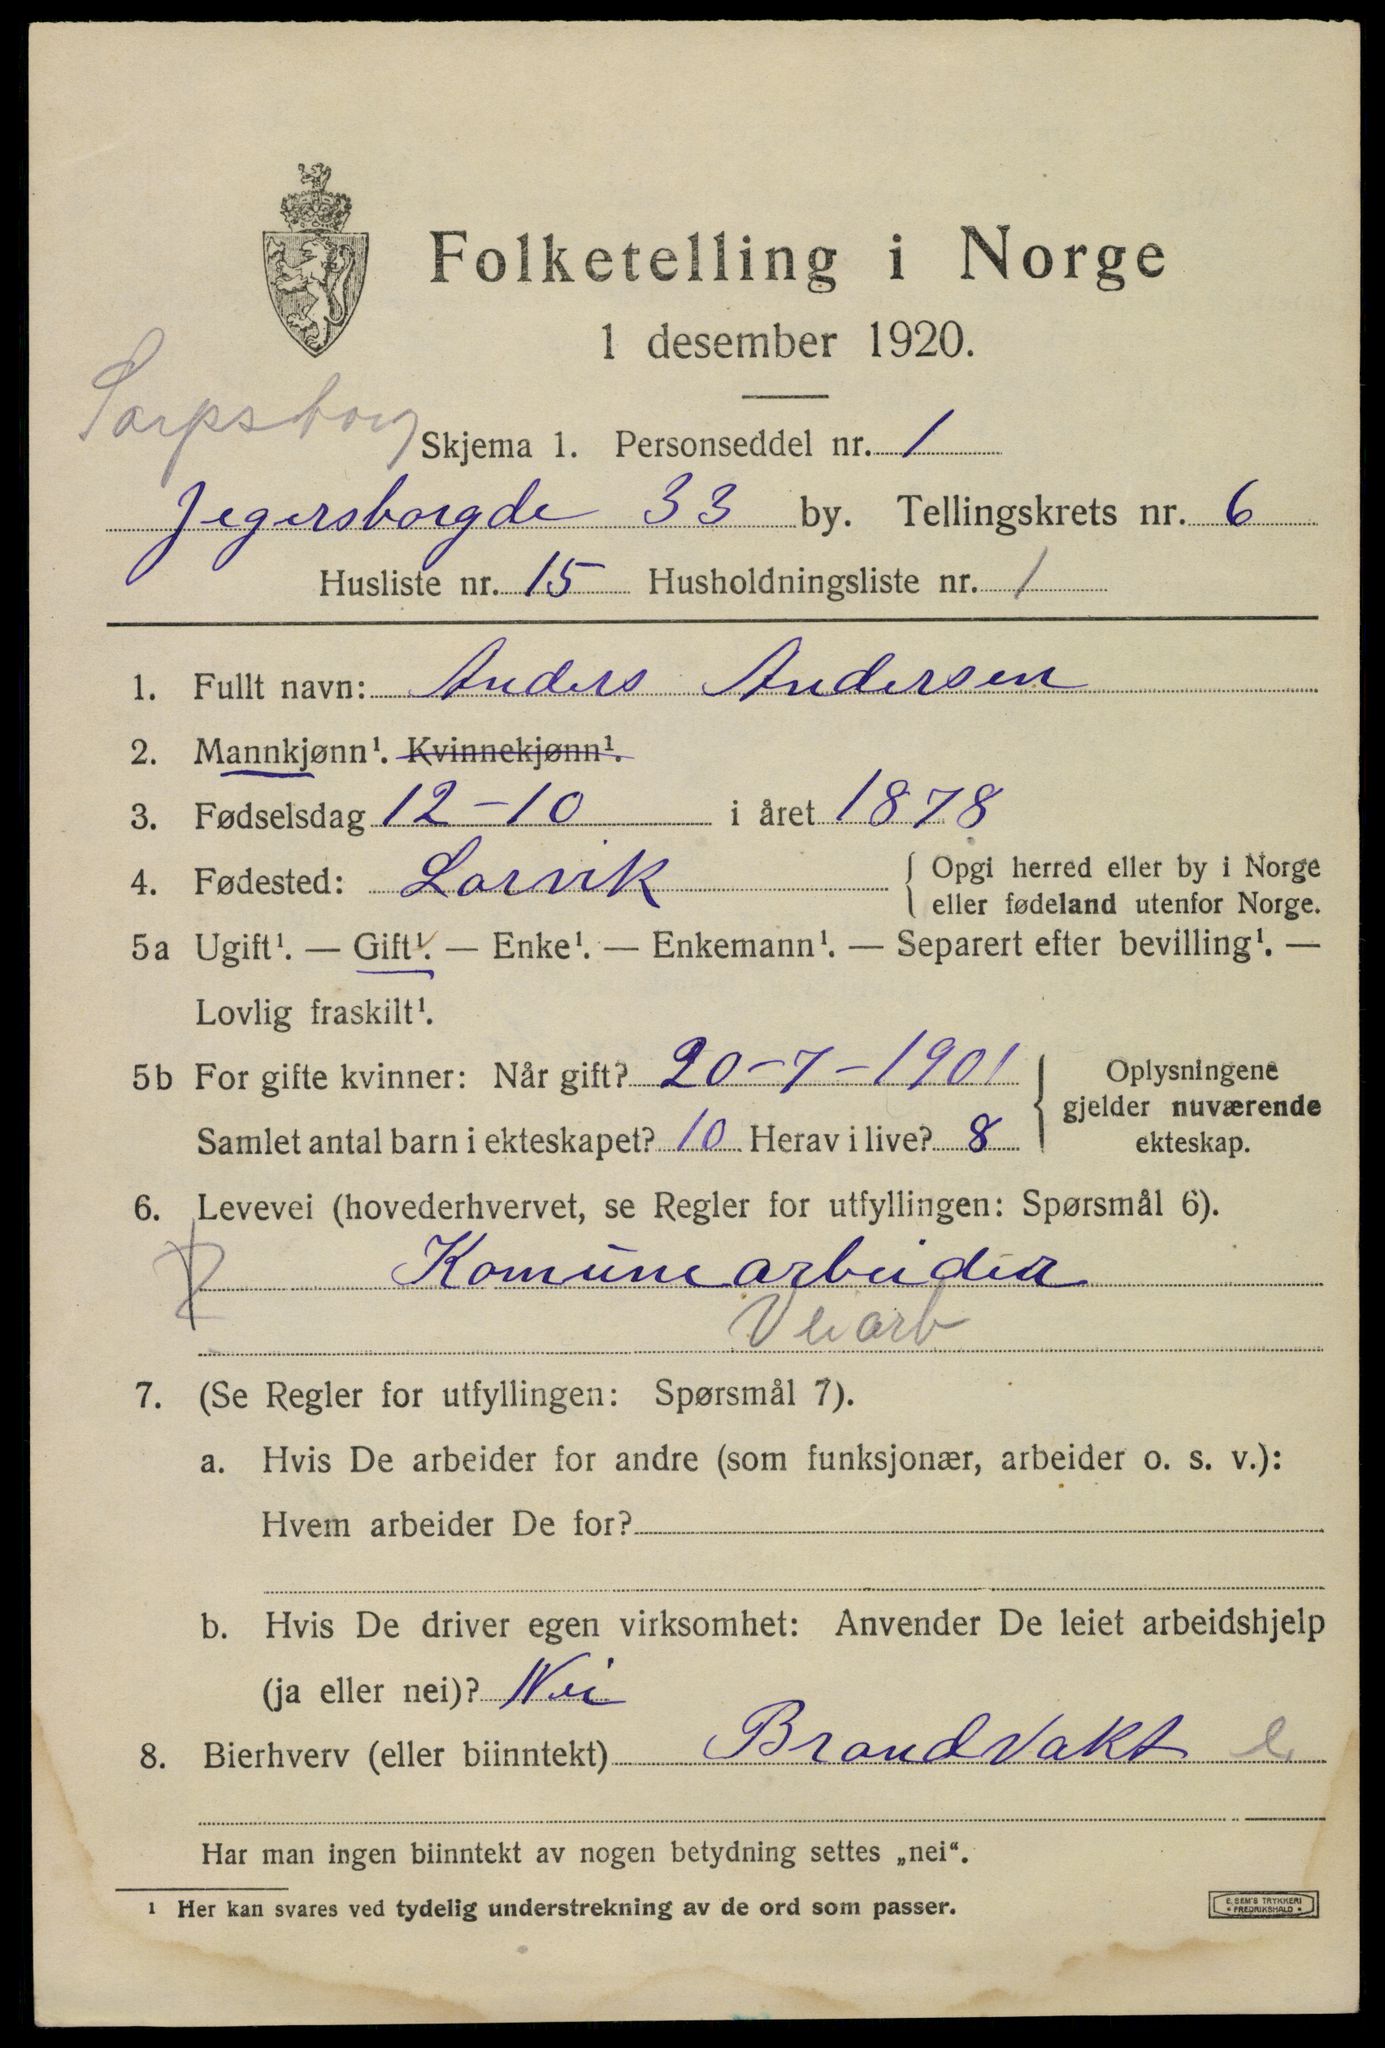 Folketelling i Norge
1 desember 1920.
Sarpsborg
Skjema 1. Personseddel nr. 1
Jegersborgde 33 by. Tellingskrets nr. 6
Husliste nr. 15 Husholdningsliste nr. 1
1. Fullt navn: Anders Andersen
2. Mannkjønn¹. Kvinnekjønn¹.
3. Fødselsdag 12-10 i året 1878
4. Fødested: Larvik { Opgi herred eller by i Norge
eller fødeland utenfor Norge.
5a Ugift¹. — Gift¹. — Enke¹. — Enkemann¹. — Separert efter bevilling¹. —
Lovlig fraskilt¹.
5b For gifte kvinner: Når gift? 20-7-1901
Samlet antal barn i ekteskapet? 10 Herav i live? 8
Oplysningene
gjelder nuværende
ekteskap.
6. Levevei (hovederhvervet, se Regler for utfyllingen: Spørsmål 6).
Komunearbeider
Veiarb
7. (Se Regler for utfyllingen: Spørsmål 7).
a. Hvis De arbeider for andre (som funksjonær, arbeider o. s. v.):
Hvem arbeider De for?
b. Hvis De driver egen virksomhet: Anvender De leiet arbeidshjelp
(ja eller nei)? Nei
8. Bierhverv (eller biinntekt) Brandvakt
Har man ingen biinntekt av nogen betydning settes „nei“.
¹ Her kan svares ved tydelig understrekning av de ord som passer.
E. SEM'S TRYKKERI
• FREDRIKSHALD •